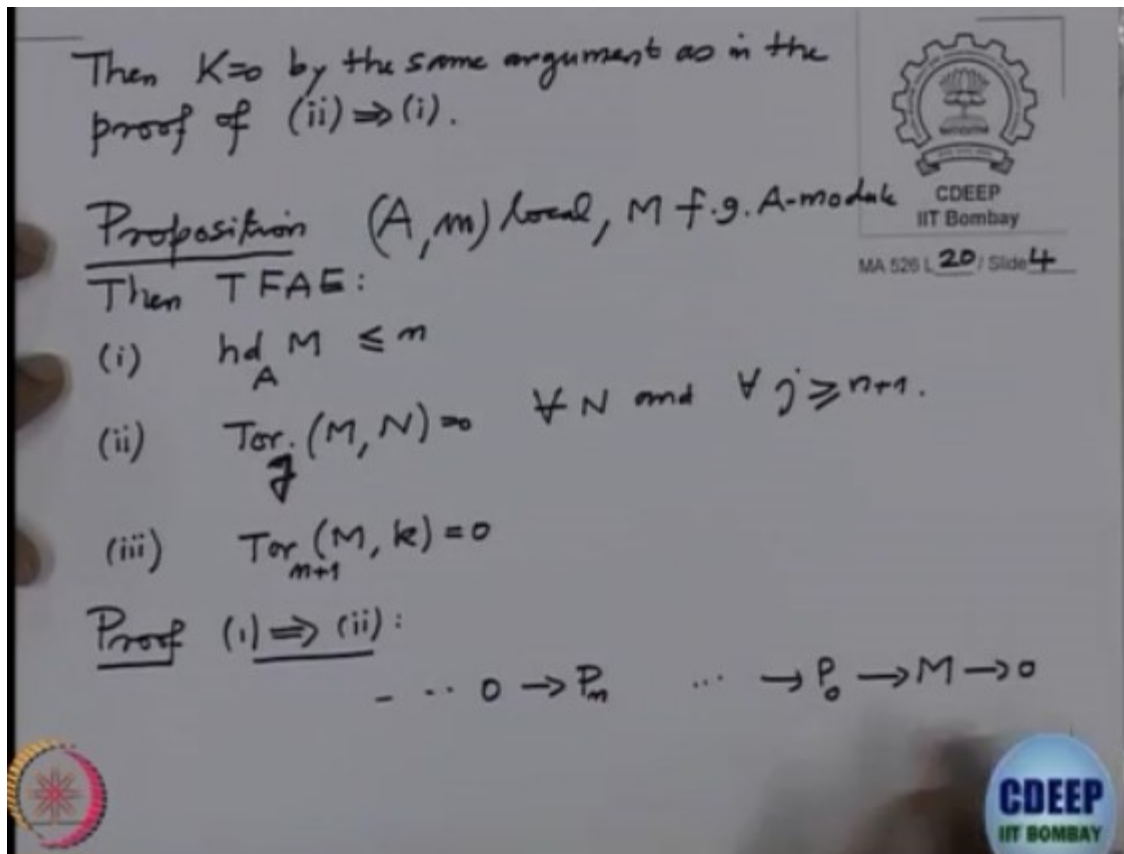 Then K=0 by the same argument as in the
proof of (ii) ⇒ (i).
CDEEP
IIT Bombay
MA 526 L 20 / Slide 4
Proposition (A, m) local, M f.g. A-module
Then TFAE:
(i) hd_A M ≤ n
(ii) Tor_j (M, N) = 0 ∀ N and ∀ j ≥ n+1.
(iii) Tor_{n+1} (M, k) = 0
Proof (i) ⇒ (ii):
- ·· 0 → P_n ... → P_0 → M → 0
CDEEP
IIT BOMBAY